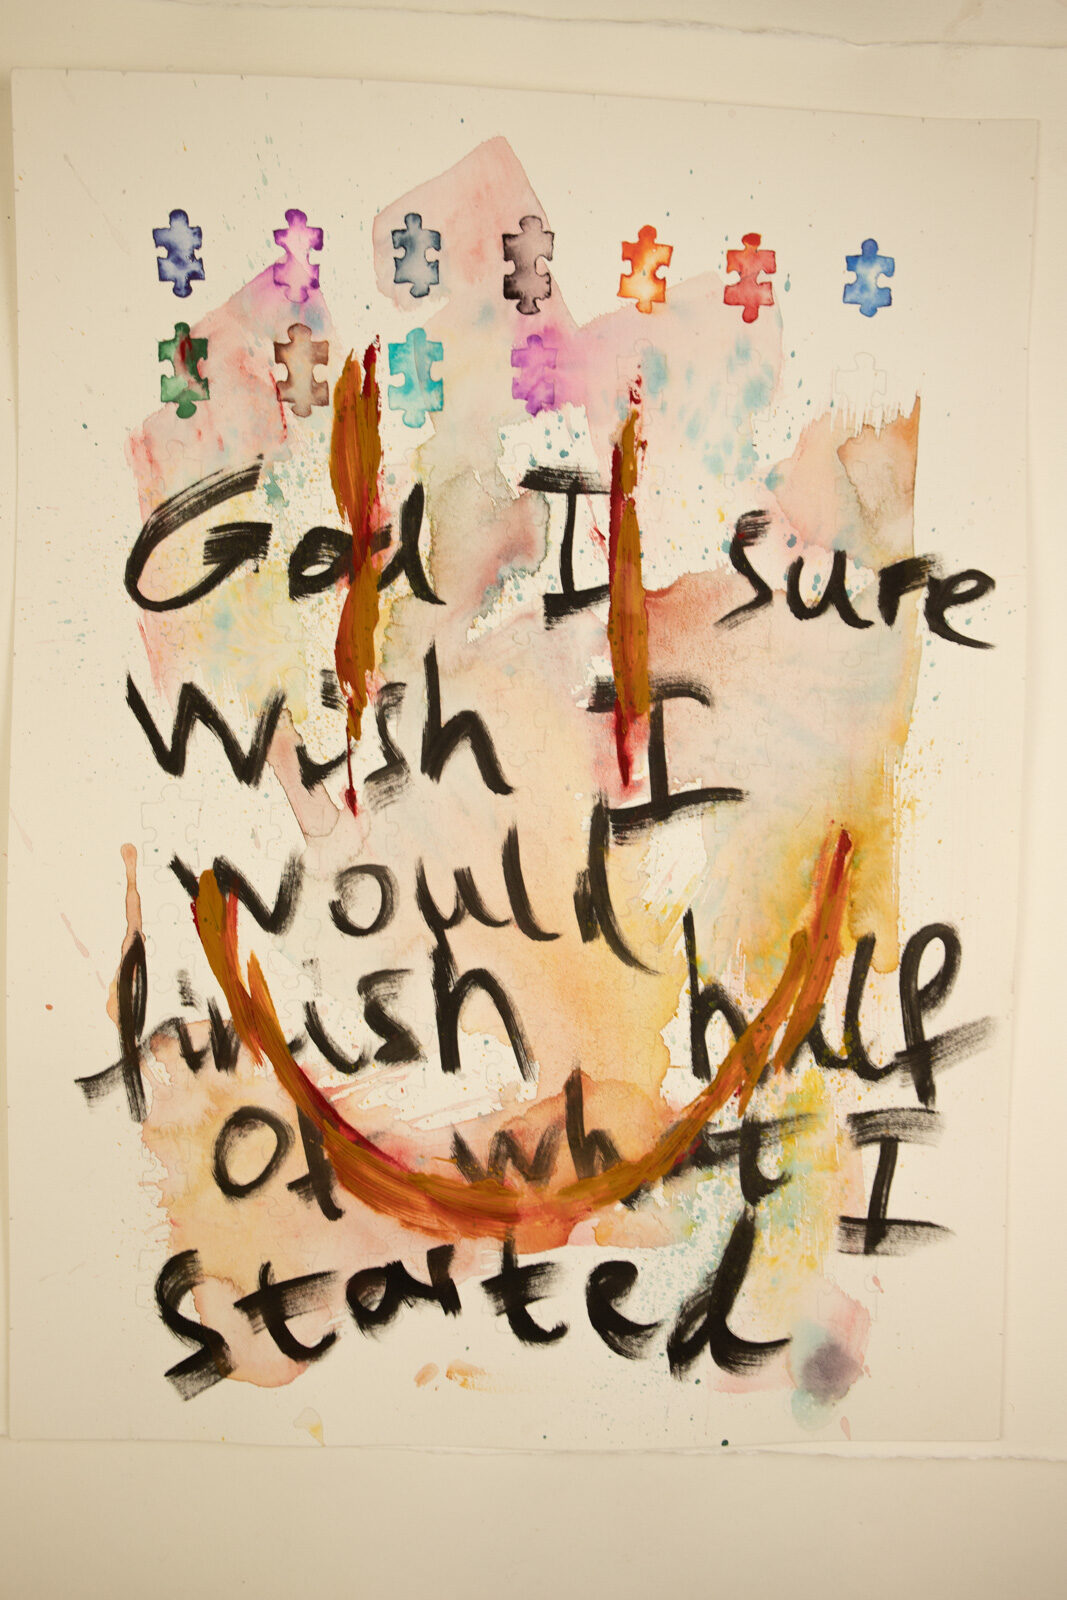 God I sure
wish I
would
finish half
of what I
started